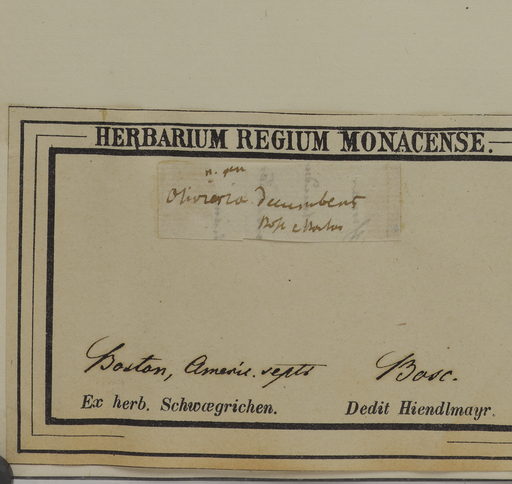 HERBARIUM REGIUM MONACENSE.
n. gen
Oliveria decumbens
Bosc e Boston
Boston, Americ. septs
Bosc.
Ex herb. Schwægrichen.
Dedit Hiendlmayr.